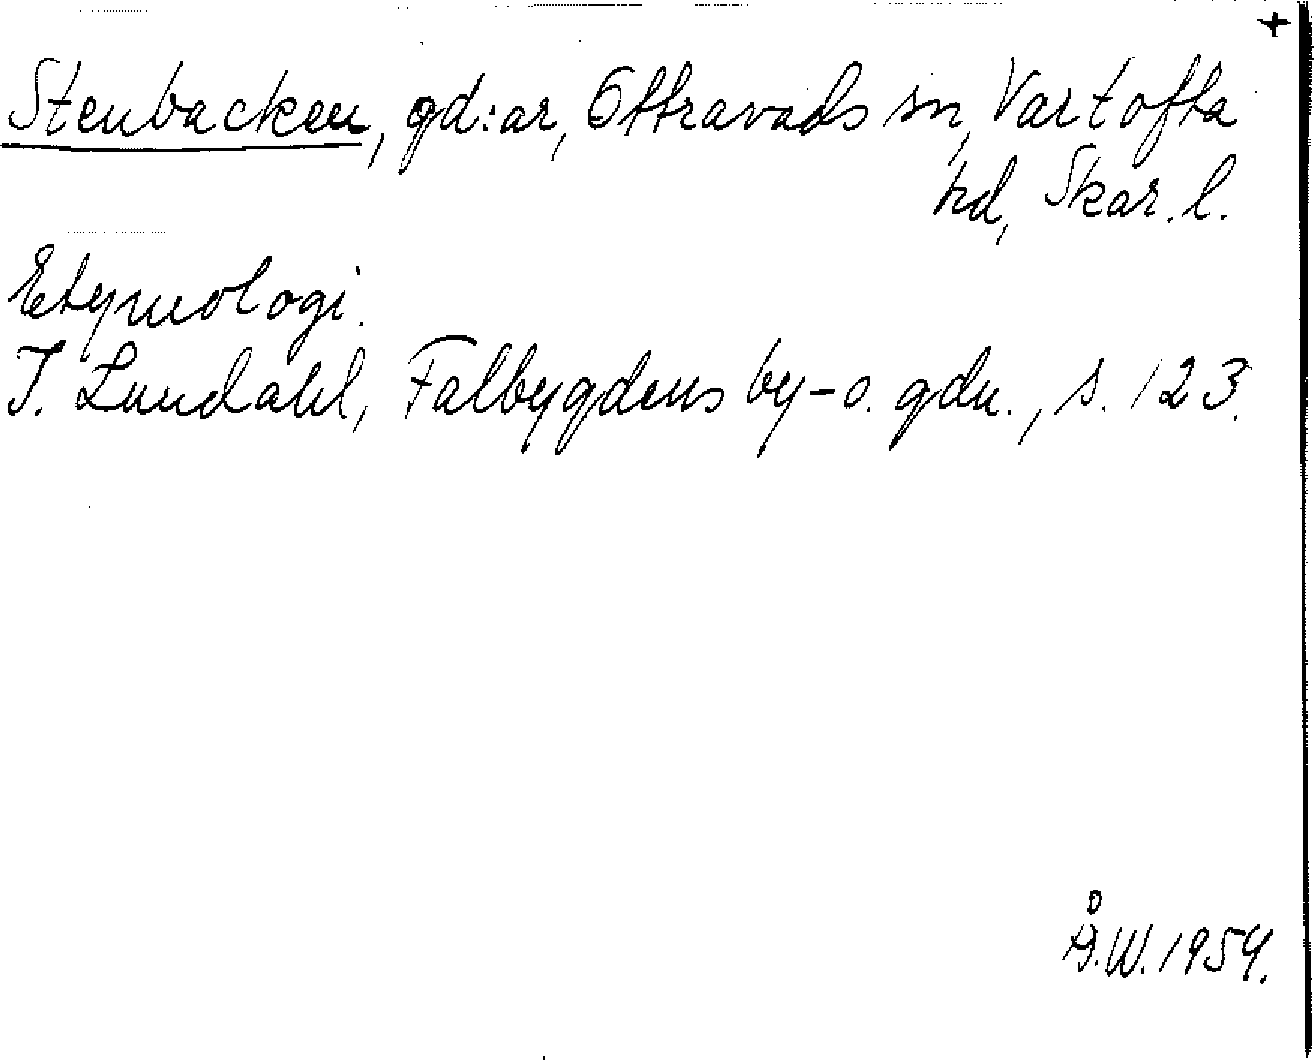 +
Stenbacken, gd:ar, Ottravads sn, Vartofta
hd, Skar. l.
Etymologi.
I. Lundahl, Falbygdens by- o. gdn., s. 123.
Å.W. 1954.